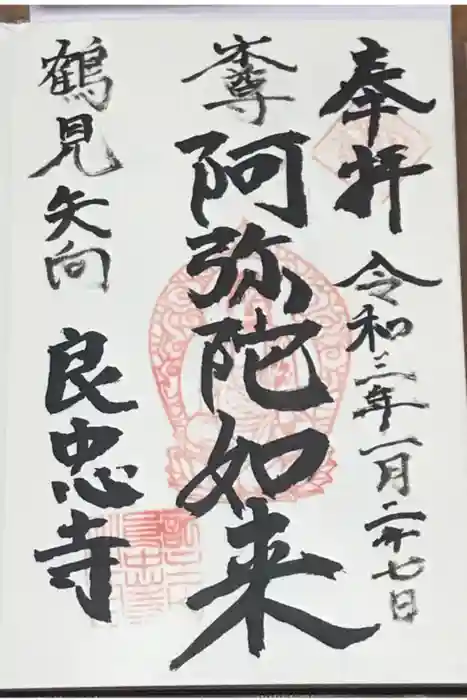 奉拝
令和三年一月二十七日
本尊
阿弥陀如来
鶴見矢向
良忠寺